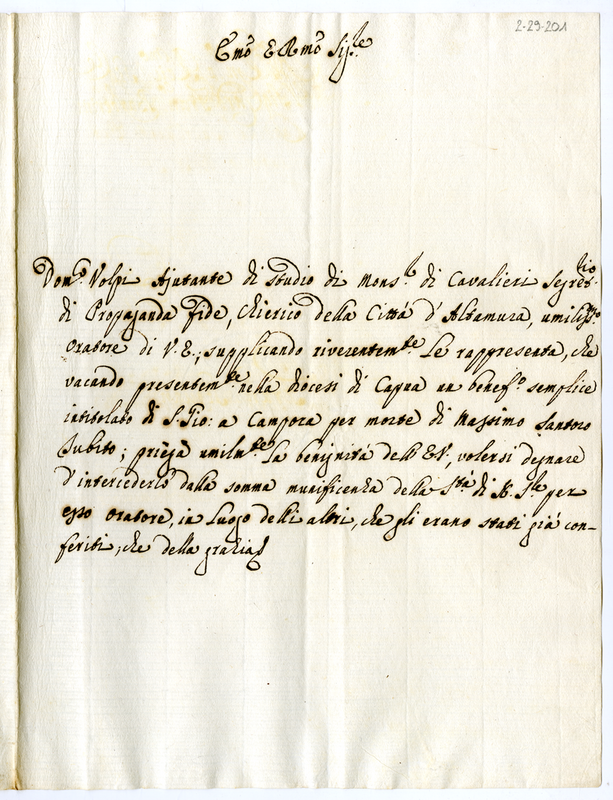 2-29-201
Emõ E Rmõ Sig.re
Dom.co Volpi Ajutante di studio di Mons.r di Cavalieri Segret.rio
di Propaganda Fide, Chierico della Città d'Altamura, umiliss.mo
oratore di V. E.; supplicando riverentem.te Le rappresenta, che
vacando presentem.te nella diocesi di Capua un benef.o semplice
intitolato di S. Gio: a Campora per morte di Massimo Santoro
Subito; priega umilm.te La benignità dell' E.V., volersi degnare
d'intercederlo dalla somma munificenza della S.tà di N. S.re per
esso oratore, in Luogo delli altri, che gli erano stati già con-
feriti; che della grazia